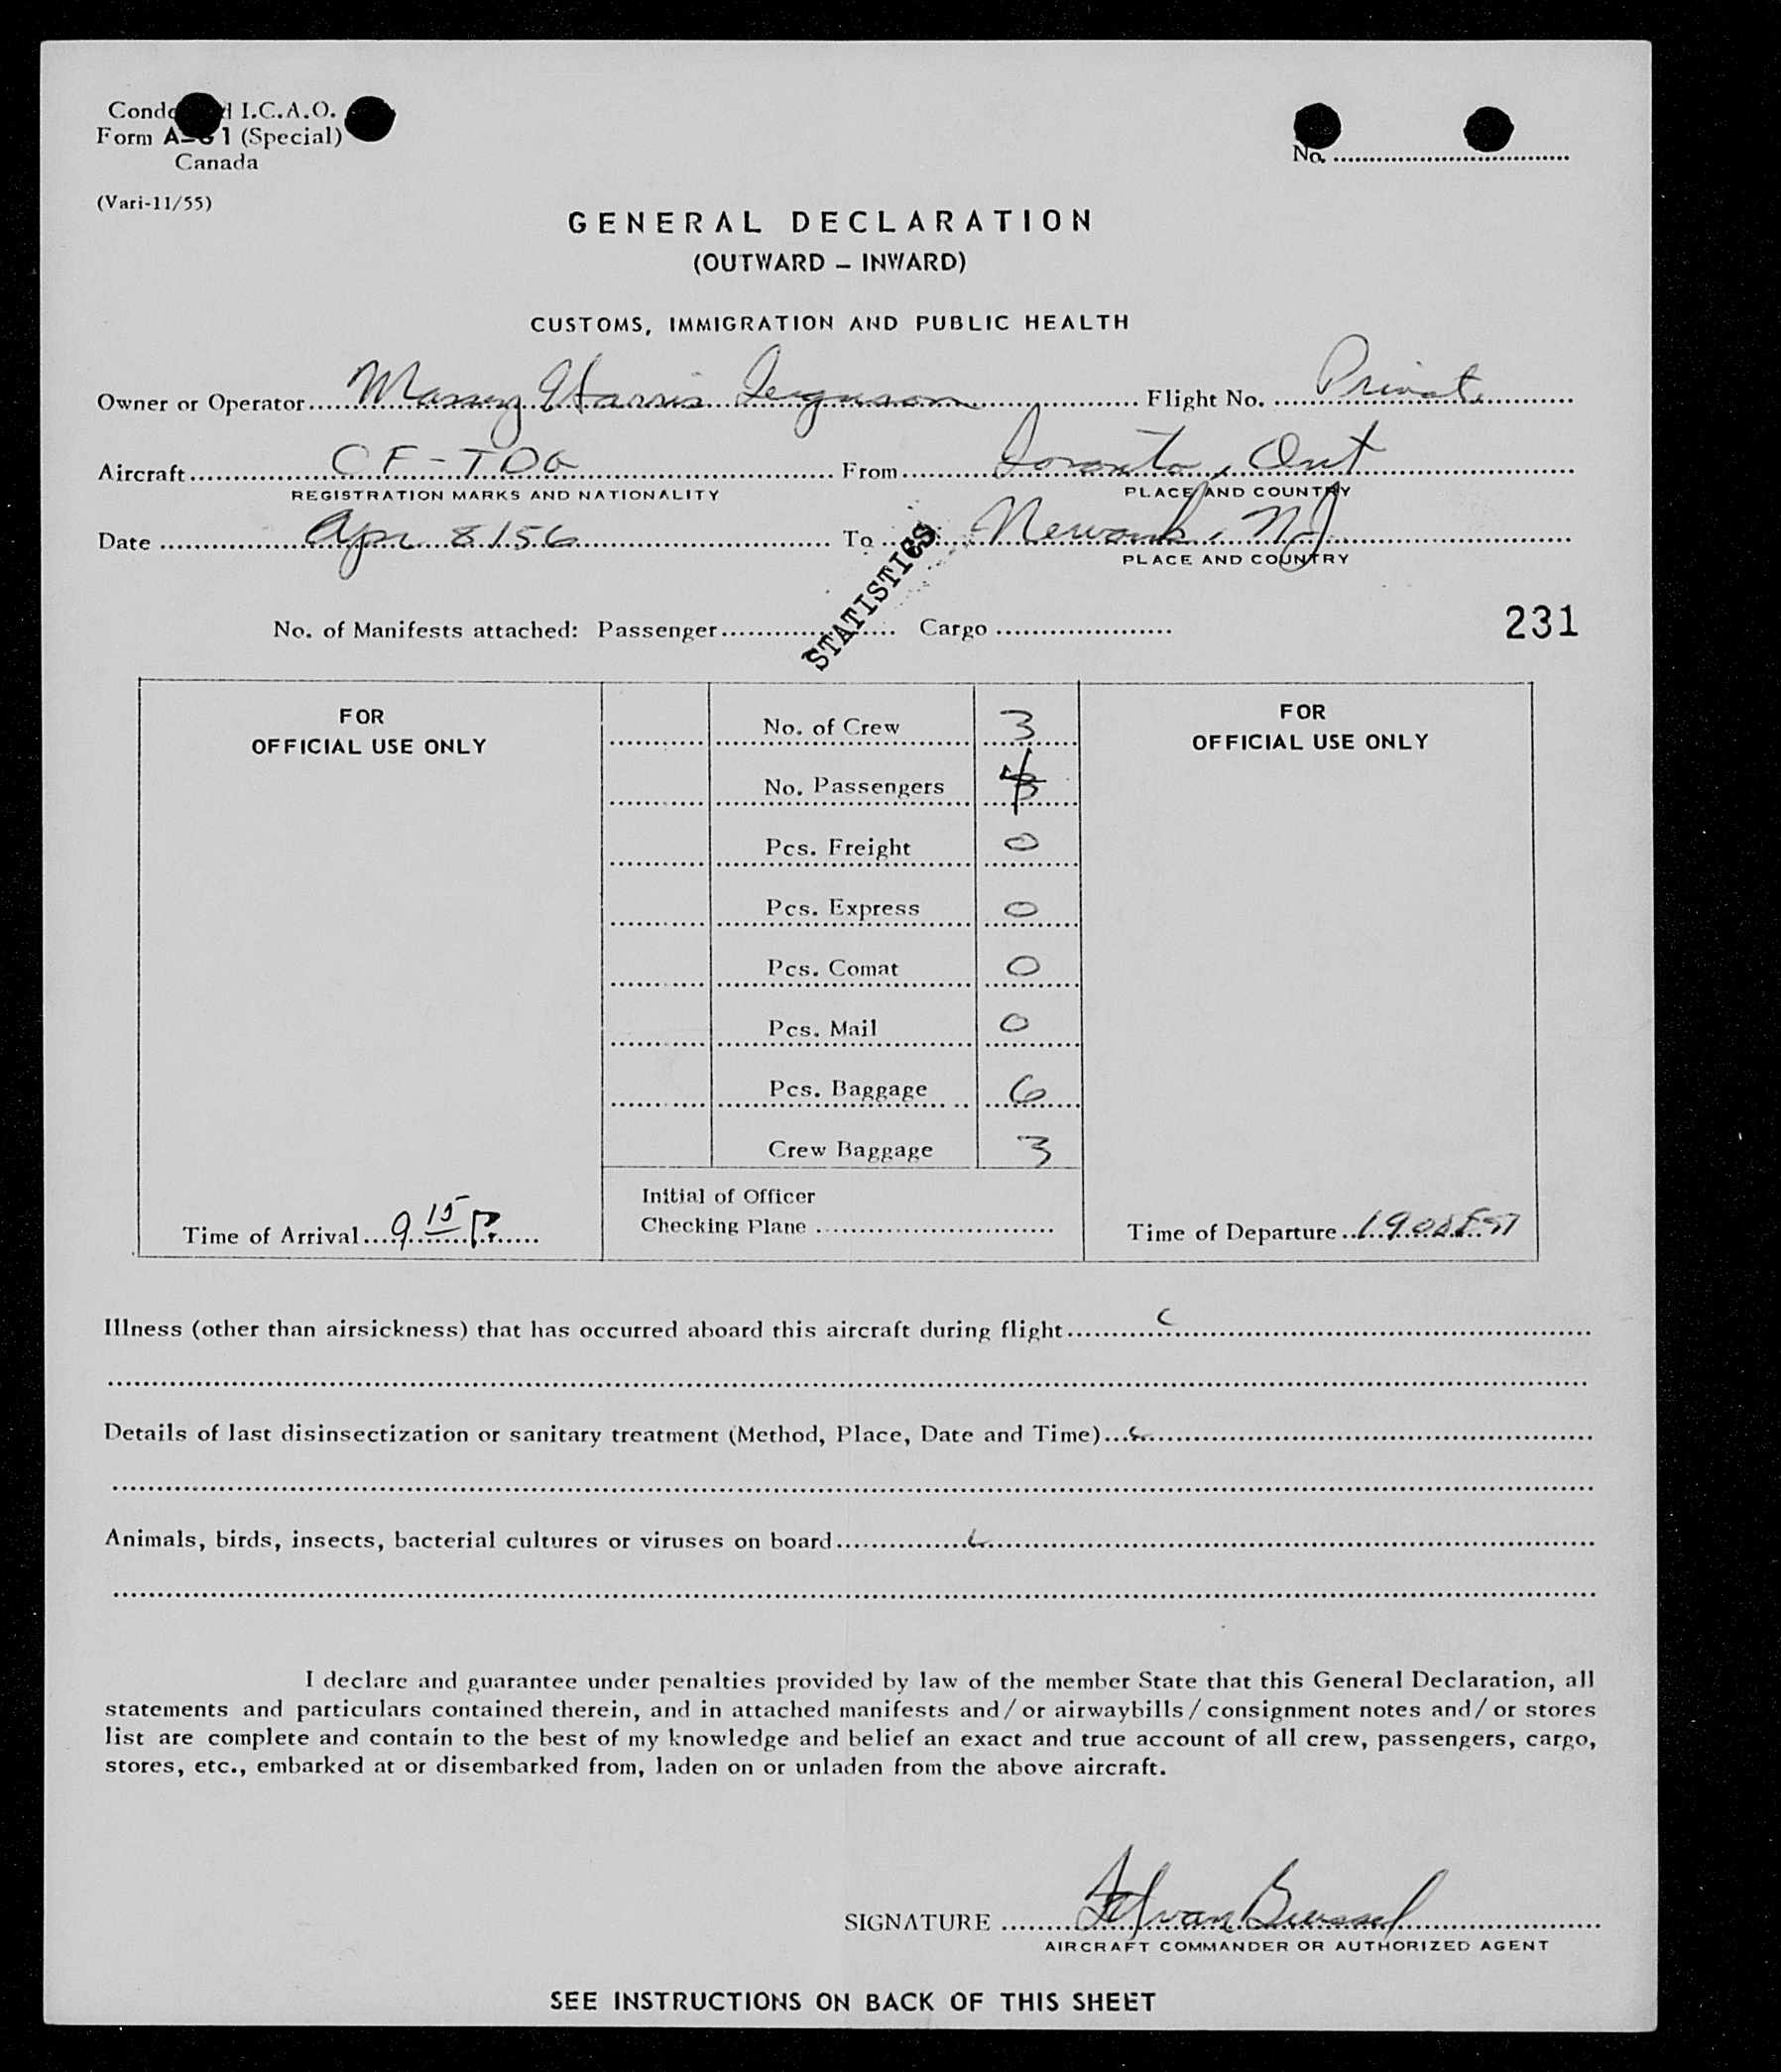 I.C.A.O.
Form 1 (Special)
Canada
No.
(Vari-11/55)
GENERAL DECLARATION
(OUTWARD – INWARD)
CUSTOMS, IMMIGRATION AND PUBLIC HEALTH
Owner or Operator Massey Harris Ferguson Flight No. Private
Aircraft CF-TDG From Toronto, Ont
REGISTRATION MARKS AND NATIONALITY PLACE AND COUNTRY
Date Apr 8/56 To Newark, NJ
PLACE AND COUNTRY
STATISTICS
No. of Manifests attached: Passenger Cargo 231
FOR
OFFICIAL USE ONLY
No. of Crew 3
No. Passengers
Pcs. Freight 0
Pcs. Express 0
Pcs. Comat 0
Pcs. Mail 0
Pcs. Baggage 6
Crew Baggage 3
FOR
OFFICIAL USE ONLY
Time of Arrival 9 15 P.
Initial of Officer
Checking Plane
Time of Departure 1900 EST
Illness (other than airsickness) that has occurred aboard this aircraft during flight
Details of last disinsectization or sanitary treatment (Method, Place, Date and Time)
Animals, birds, insects, bacterial cultures or viruses on board
I declare and guarantee under penalties provided by law of the member State that this General Declaration, all
statements and particulars contained therein, and in attached manifests and/or airwaybills/consignment notes and/or stores
list are complete and contain to the best of my knowledge and belief an exact and true account of all crew, passengers, cargo,
stores, etc., embarked at or disembarked from, laden on or unladen from the above aircraft.
SIGNATURE
AIRCRAFT COMMANDER OR AUTHORIZED AGENT
SEE INSTRUCTIONS ON BACK OF THIS SHEET